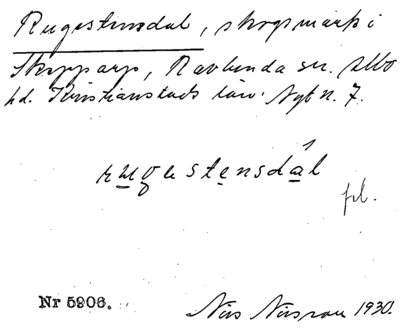 Rugestensdal, skogsmark i
Skepparp, Ravlunda sn. Albo
hd. Kristianstads län. Nybn. 7.
rugestensdál
pl.
Nr 5906.
Nils Nilsson 1930.